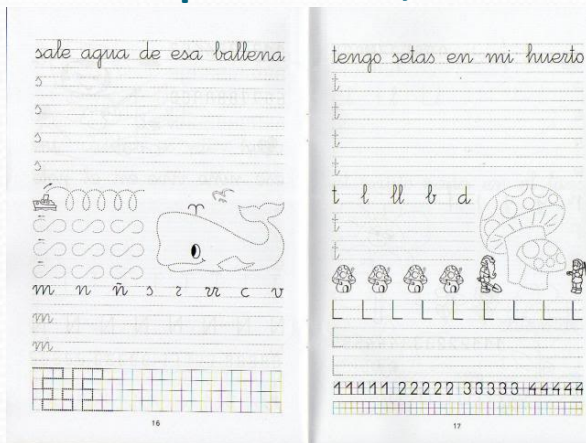 sale agua de esa ballena
s
s
s
s
m n ñ s r rr c v
m
m
16
tengo setas en mi huerto
t
t
t
t
t l ll b d
t
t
L L L L L L L L L
L
L
11111 22222 33333 44444
17